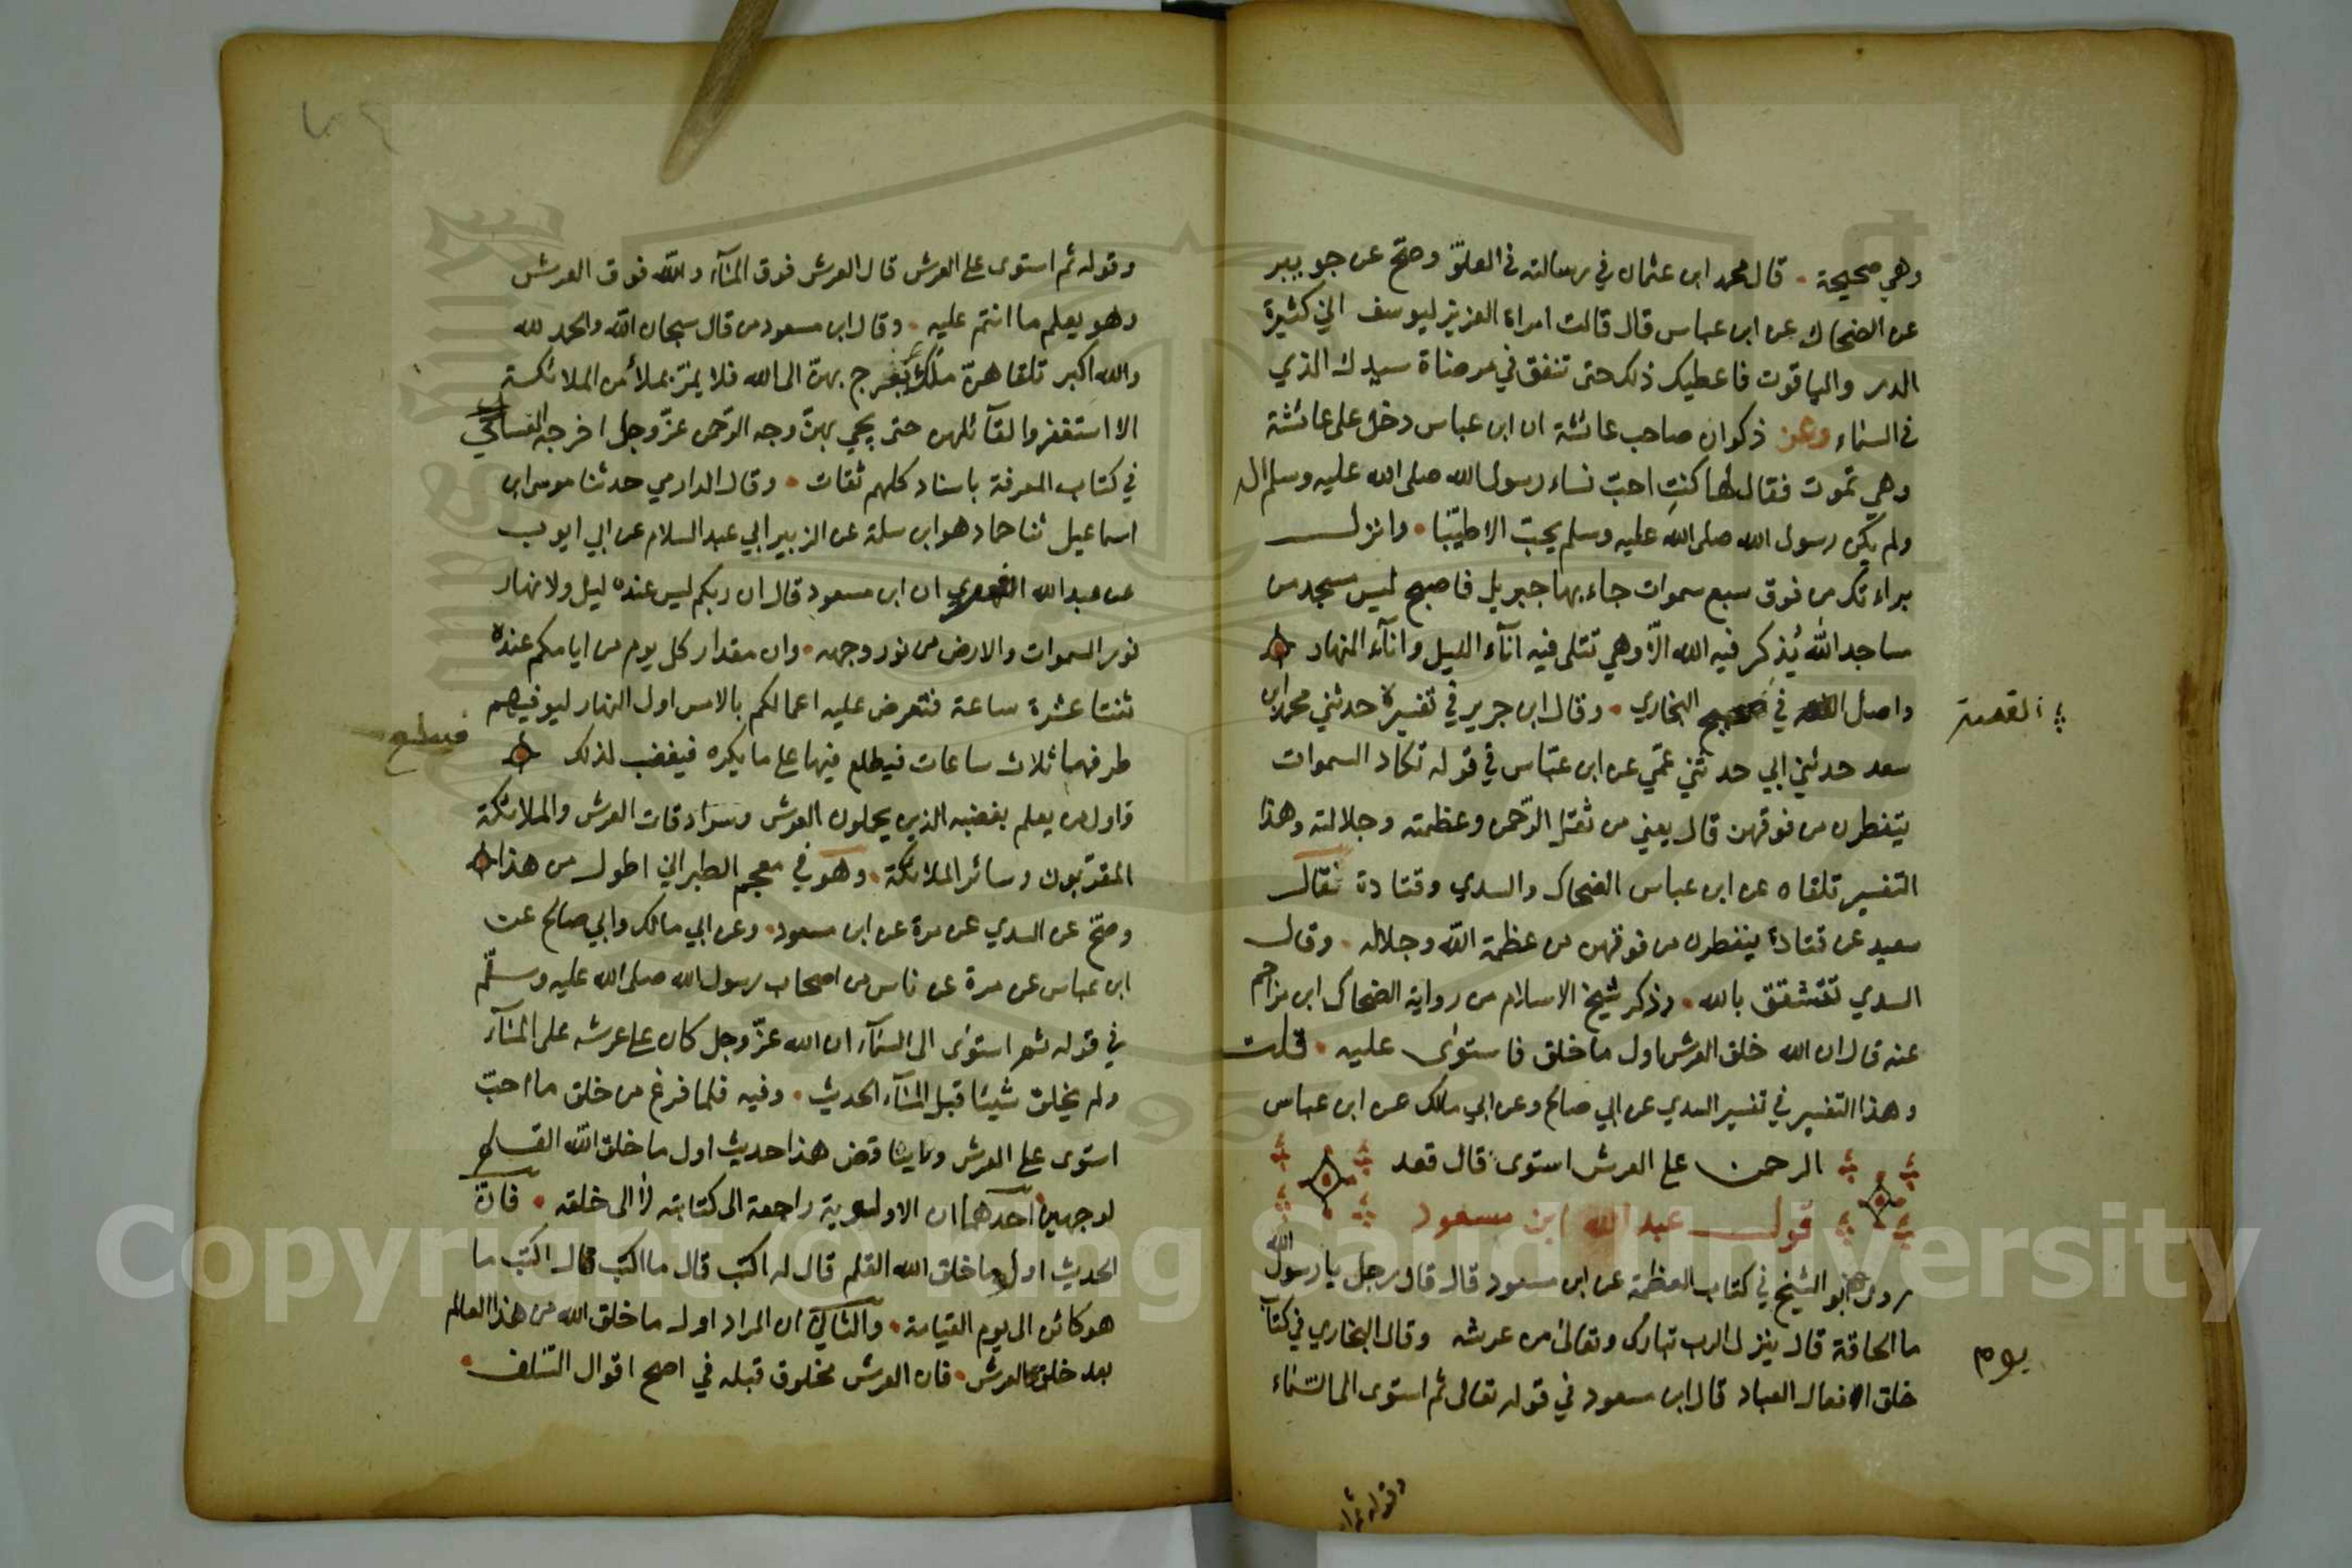 وهي صحيحة . قال محمد ابن عثمان في رسالته في العلوّ وصحّ عن جويبر
عن الضحاك عن ابن عباس قال قالت امراة العزيز ليوسف اني كثيرة
الدر والياقوت فاعطيك ذلك حتى تنفق في مرضاة سيدك الذي
في السماء وعن ذكوان صاحب عائشة ان ابن عباس دخل على عائشة
وهي تموت فقال لها كنتِ احبّ نساء رسول الله صلى الله عليه وسلم اليه
ولم يكن رسول الله صلى الله عليه وسلم يحبّ الا طيّبا . وانزل
براءتك من فوق سبع سموات جاء بها جبريل فاصبح ليس مسجد من
مساجد الله يُذكر فيه الله الّا وهي تتلى فيه آناء الليل وآناء النهار
واصل القصة في صحيح البخاري . وقال ابن جرير في تفسيره حدثني محمد ابن
القصة
سعد حدثني ابي حدثني عمّي عن ابن عبّاس في قوله تكاد السموات
يتفطرن من فوقهن قال يعني من ثقل الرّحمن وعظمته وجلالته وهذا
التفسير تلقاه عن ابن عباس الضحاك والسدي وقتادة فقال
سعيد عن قتادة ينفطرن من فوقهن من عظمة الله وجلاله . وقال
السدي تتشقق بالله . وذكر شيخ الاسلام من رواية الضحاك ابن مزاحم
عنه قال ان الله خلق العرش اول ما خلق فاستوى عليه . قلت
وهذا التفسير في تفسير السدي عن ابي صالح وعن ابي مالك عن ابن عباس
الرحمن على العرش استوى قال قعد
قول عبد الله ابن مسعود
روى ابو الشيخ في كتاب العظمة عن ابن مسعود قال قال رجل يا رسول الله
ما الحاقة قال ينزل الرب تبارك وتعالى من عرشه وقال البخاري في كتاب
يوم
خلق الافعال العباد قال ابن مسعود في قوله تعالى ثم استوى الى السّماء
وقوله ثم ا
وقوله ثم استوى على العرش قال العرش فوق المآء والله فوق العرش
وهو يعلم ما انتم عليه . وقال ابن مسعود من قال سبحان الله والحمد لله
والله اكبر تلقاهنّ ملك فيعرج بهنّ الى الله فلا يمرّ بملأ من الملائكة
الا استغفروا لقآئلهن حتى يجي بهنّ وجه الرّحمن عزّ وجل اخرجه العسال
في كتاب المعرفة باسناد كلهم ثقات . وقال الدارمي حدثنا موسى ابن
اسماعيل ثنا حماد هو ابن سلمة عن الزبير ابي عبد السلام عن ابي ايوب
عن عبد الله الفهري ان ابن مسعود قال ان ربكم ليس عنده ليل ولا نهار
نور السموات والارض من نور وجهه . وان مقدار كل يوم من ايامكم عنده
ثنتا عشرة ساعة فتعرض عليه اعمالكم بالامس اول النهار ليوفيهم
طرفهما ثلاث ساعات فيطلع فيها على ما يكره فيغضب لذلك
فيطلع
فاول من يعلم بغضبه الذين يحملون العرش وسرادقات العرش والملائكة
المقرّبون وسائر الملائكة . وهو في معجم الطبراني اطول من هذا
وصحّ عن السدي عن مرة عن ابن مسعود . وعن ابي مالك وابي صالح عن
ابن عباس عن مرة عن ناس من اصحاب رسول الله صلى الله عليه وسلّم
في قوله ثم استوى الى السّمآء ان الله عزّ وجل كان على عرشه على المآء
ولم يخلق شيئا قبل المآء الحديث . وفيه فلما فرغ من خلق ما احبّ
استوى على العرش ولا يناقض هذا حديث اول ما خلق الله القلم
لوجهين احدهما ان الاولوية راجعة الى كتابته لا الى خلقه . فانّ
الحديث اول ما خلق الله القلم قال له اكتب قال ما اكتب قال اكتب ما
هو كائن الى يوم القيامة . والثاني ان المراد اول ما خلق الله من هذا العالم
بعد خلق العرش . فان العرش مخلوق قبله في اصح اقوال السّلف .
Copyright © King Saud University